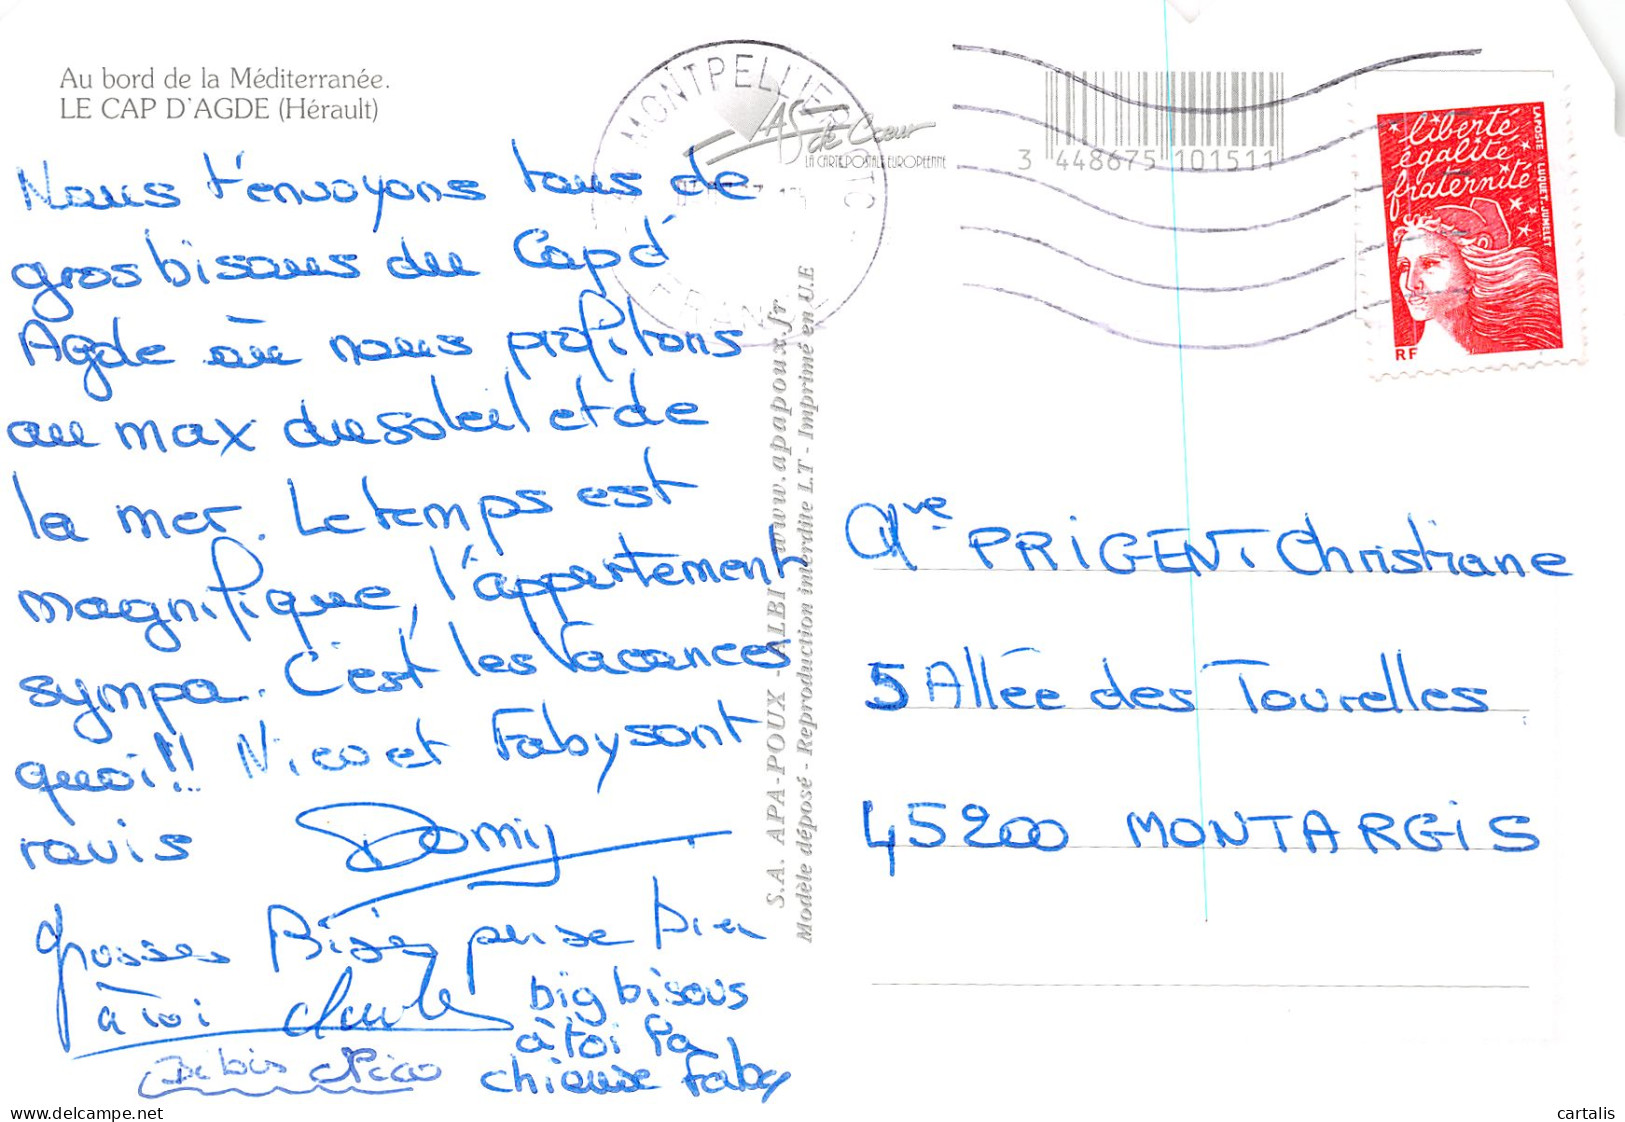 Au bord de la Méditerranée.
LE CAP D'AGDE (Hérault)
Nous t'envoyons tous de
gros bisous du Cap d'
Agde où nous profitons
au max du soleil et de
la mer. Le temps est
magnifique, l'appartement
sympa. C'est les Vacances
quoi!! Nico et Faby sont
ravis Domij
grosses Bises pense bien
à toi
big bisous
à toi la
chieuse Faby
Nico
MONTPELLIER CTC
FRANCE
AS de Cœur
LA CARTE POSTALE EUROPEENNE
3 448675 101511
liberté
égalité
fraternité
LA POSTE LUQUET-JUMELET
RF
S.A. APA-POUX - ALBI www.apapoux.fr
Modèle déposé - Reproduction interdite L.T - Imprimé en U.E
PRIGENT Christiane
5 Allée des Tourelles
45200 MONTARGIS
www.delcampe.net
cartalis